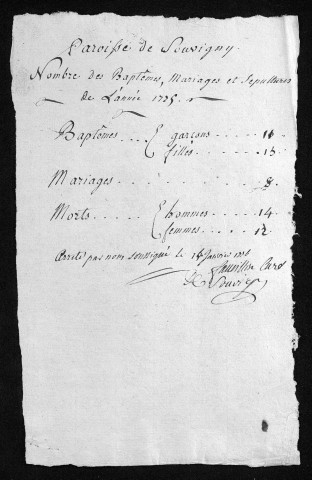 Paroisse de Souvigny.
Nombre des Baptêmes, Mariages et Sepultures
de L'année 1775.
Baptêmes . . . { garçons . . . . . 16
{ filles . . . . . 13
Mariages . . . . . . . . . . . 8
Morts . . . . { hommes . . . . . 14
{ femmes . . . . . 12
Arreté par nous soussigné le Janvier
Curé
de Souvigny